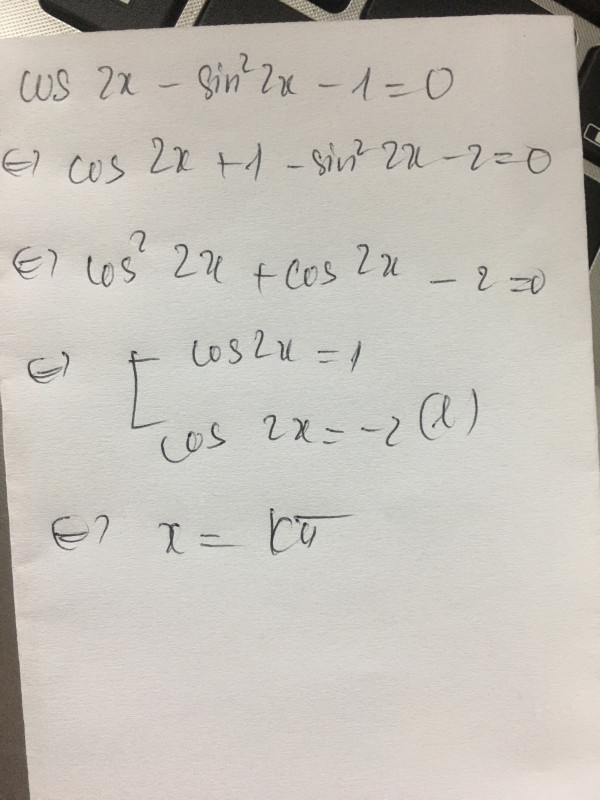 cos 2x - sin² 2x - 1 = 0
⇔ cos 2x + 1 - sin² 2x - 2 = 0
⇔ cos² 2x + cos 2x - 2 = 0
⇔ [ cos 2x = 1
cos 2x = -2 (l)
⇔ x = kπ